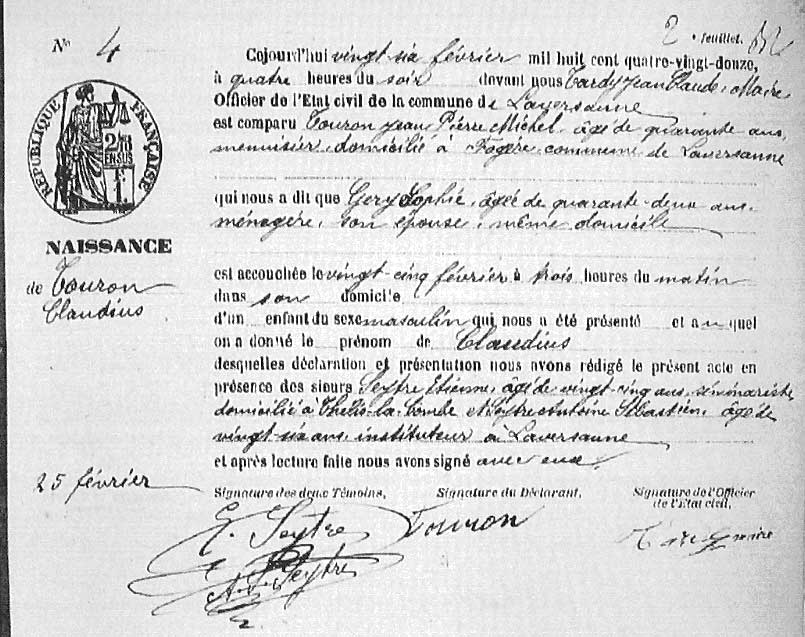 2e feuillet.
No 4
Cejourd'hui vingt six février mil huit cent quatre-vingt-douze,
à quatre heures du soir devant nous Tardy Jean Claude, Maire
Officier de l'Etat civil de la commune de Laversanne
est comparu Touron Jean Pierre Michel, âgé de quarante ans,
menuisier, domicilié à commune de Laversanne
qui nous a dit que Gery Sophie, âgée de quarante-deux ans,
ménagère, son épouse, même domicile
est accouchée le vingt-cinq février à trois heures du matin
dans son domicile
d'un enfant du sexe masculin qui nous a été présenté et auquel
on a donné le prénom de Claudius
desquelles déclaration et présentation nous avons rédigé le présent acte en
présence des sieurs Seytre Etienne, âgé de vingt-cinq ans, séminariste
domicilié à Thélis-la-Combe et Seytre Antoine Sébastien, âgé de
vingt six ans, instituteur à Laversanne
et après lecture faite nous avons signé avec eux.
REPUBLIQUE FRANÇAISE
NAISSANCE
de Touron
Claudius
25 février
Signature des deux Témoins, Signature du Déclarant, Signature de l'Officier
de l'Etat civil,
E. Seytre Touron
A. S. Seytre